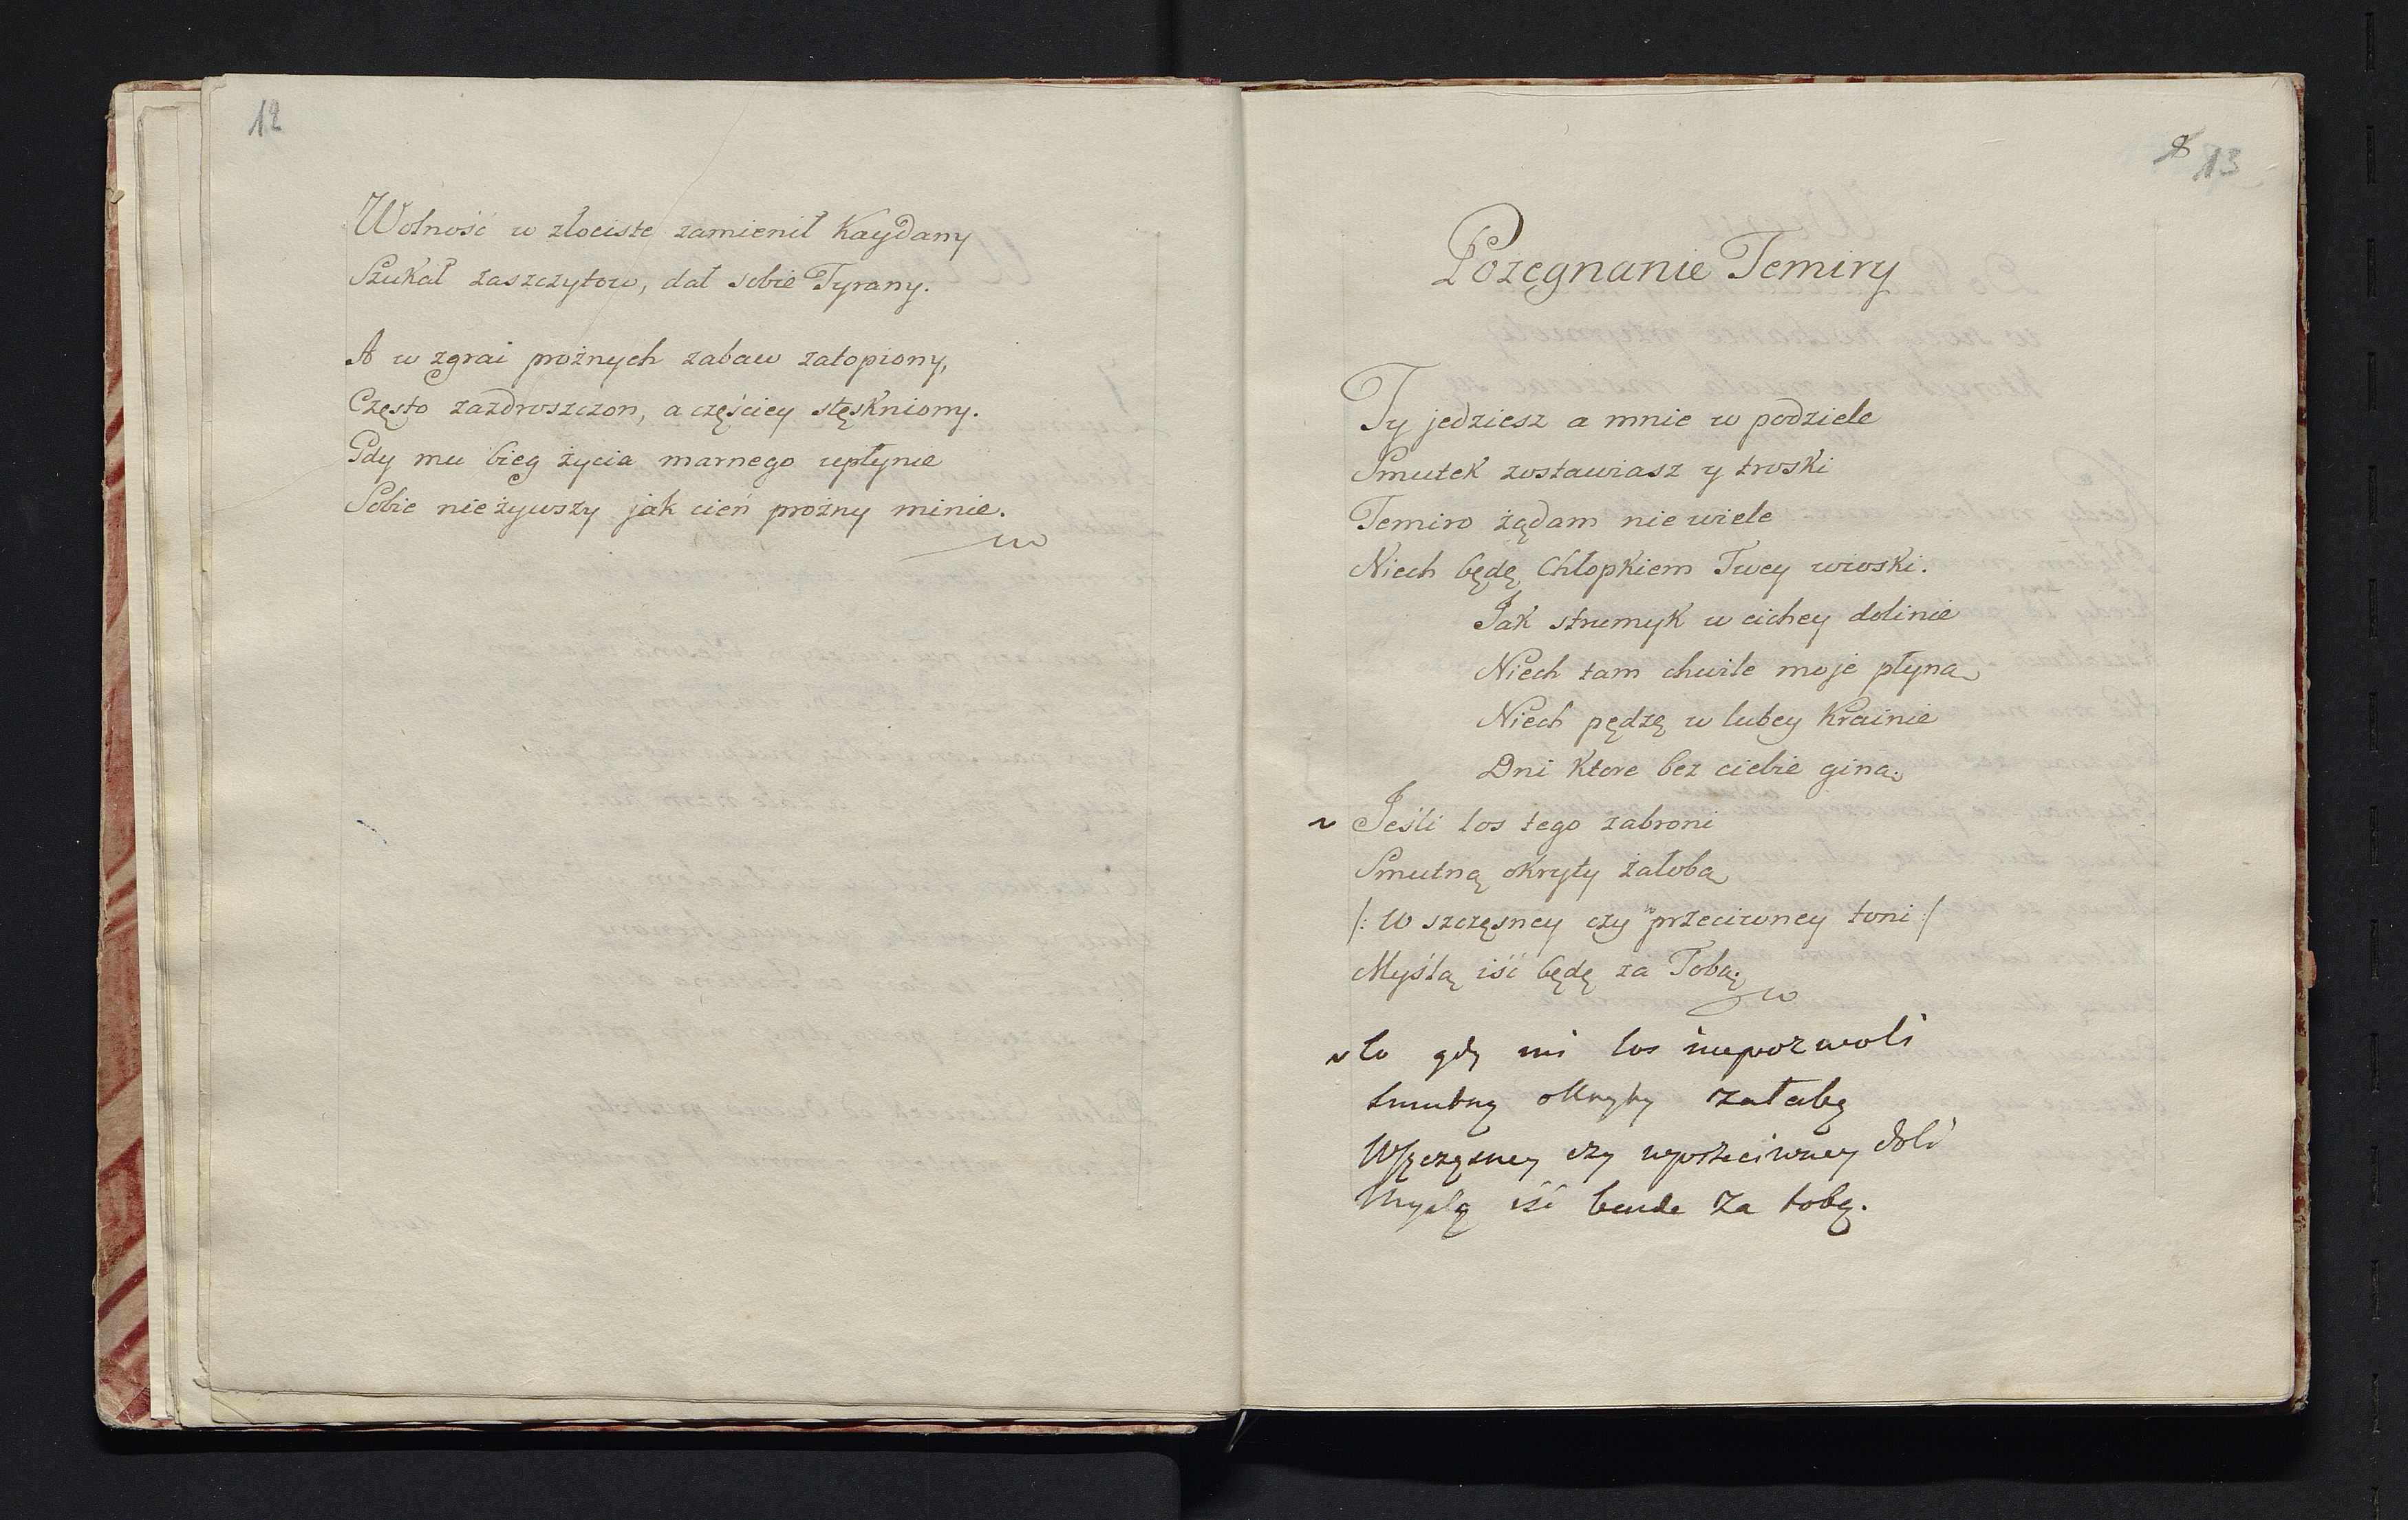 12
Wolność w złociste zamienił Kaydany
Szukał zaszczytow, dał sobie Tyrany.
A w zgrai prożnych zabaw zatopiony,
Często zazdroszczon, a częściey stęskniony.
Gdy mu bieg życia marnego upłynie
Sobie nieżywszy jak cień prożny minie.
8 13
Pozegnanie Temiry
Ty jedziesz a mnie w podziele
Smutek zostawiasz y troski
Temiro żądam nie wiele
Niech będę Chłopkiem Twey wioski.
Jak strumyk w cichey dolinie
Niech tam chwile moje płyną
Niech pędzę w lubey Krainie
Dni ktore bez ciebie giną.
Jeśli los tego zabroni
Smutną okryty żałobą
/: W szczęsney czy w przeciwney toni :/
Myślą iść będę za Tobą.
to gdy mi los niepozwoli
Smutną okryty załobą
W szczęsney czy wprzeciwney doli
Myslą iść bende za tobą.